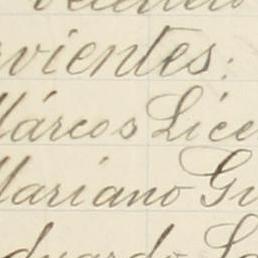 rvientes:
Márcos Lice
Mariano Gu
duardo La